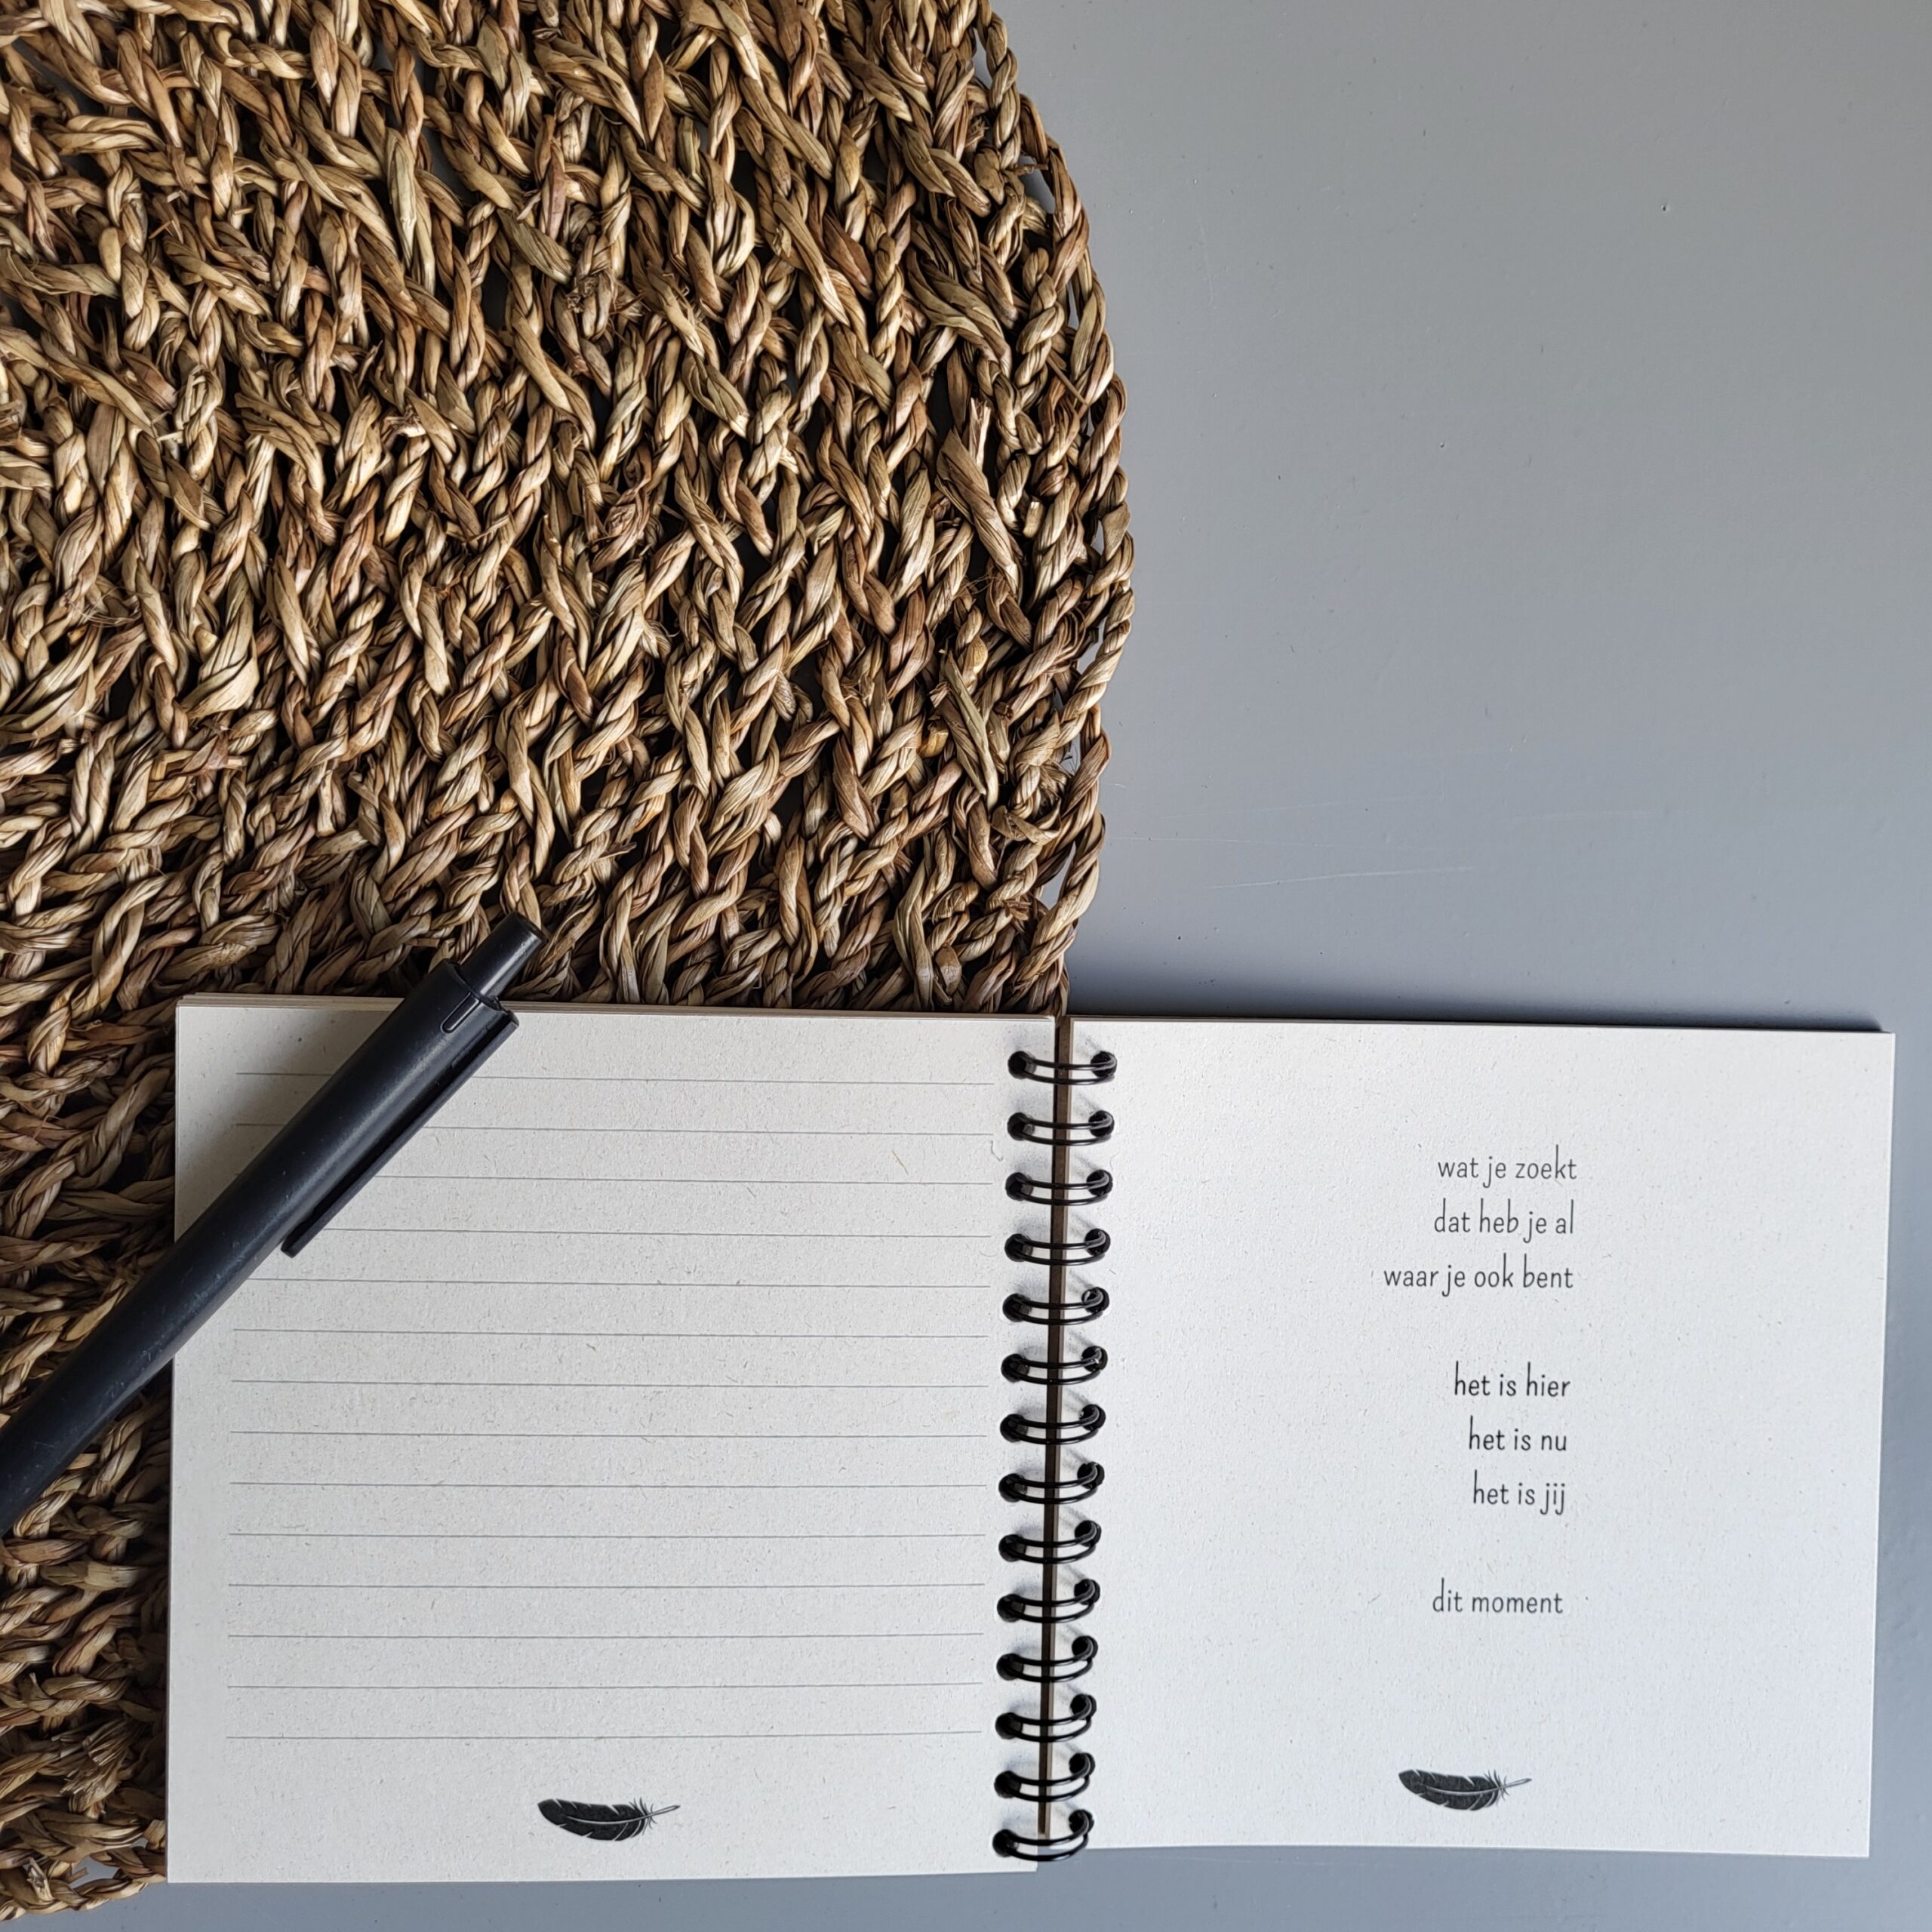 wat je zoekt
dat heb je al
waar je ook bent
het is hier
het is nu
het is jij
dit moment